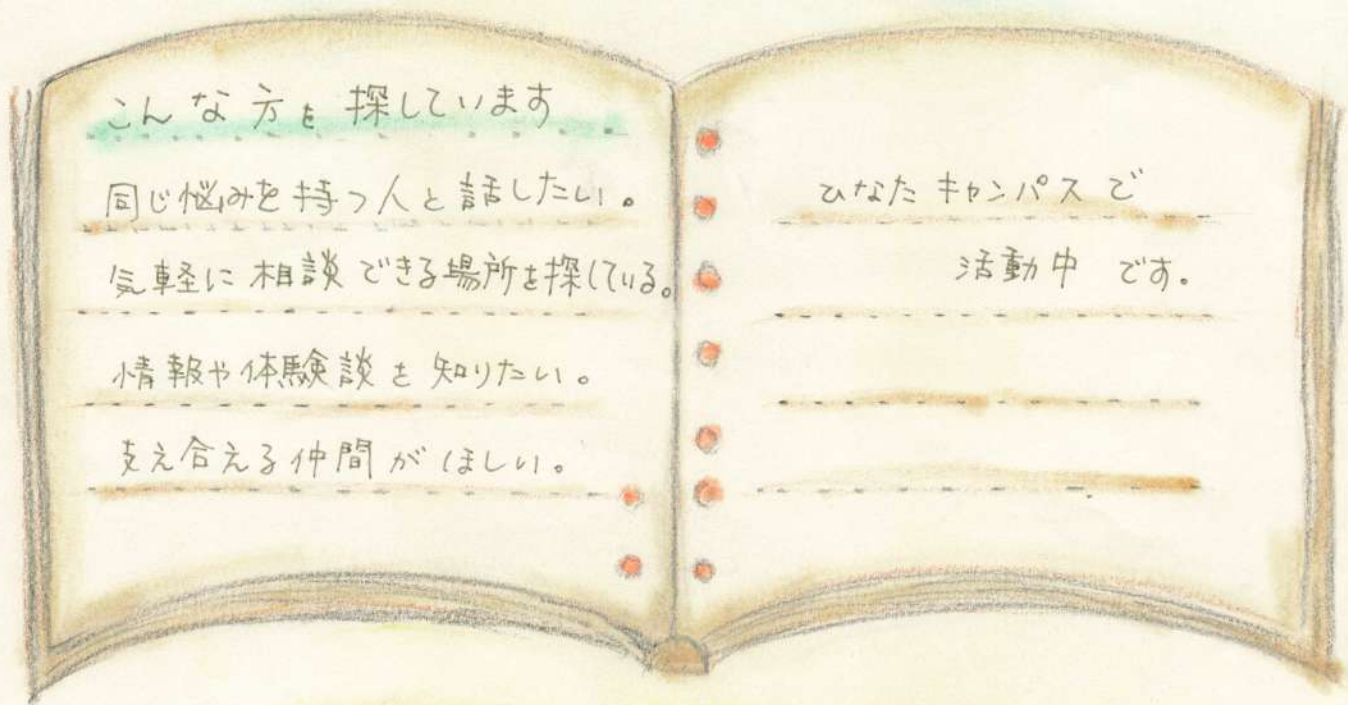 こんな方を探しています
同じ悩みを持つ人と話したい。
気軽に相談できる場所を探している。
情報や体験談を知りたい。
支え合える仲間がほしい。
ひなたキャンパスで
活動中です。